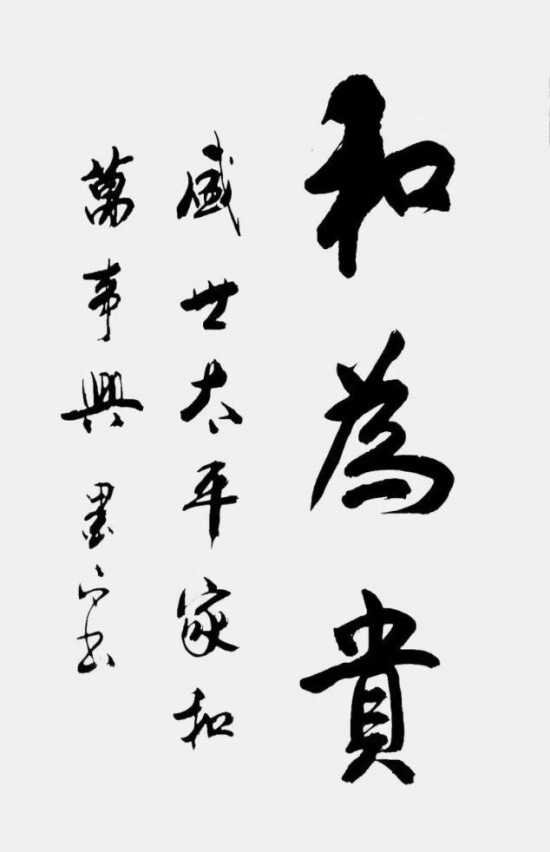 和為貴
盛世太平家和
萬事興 墨